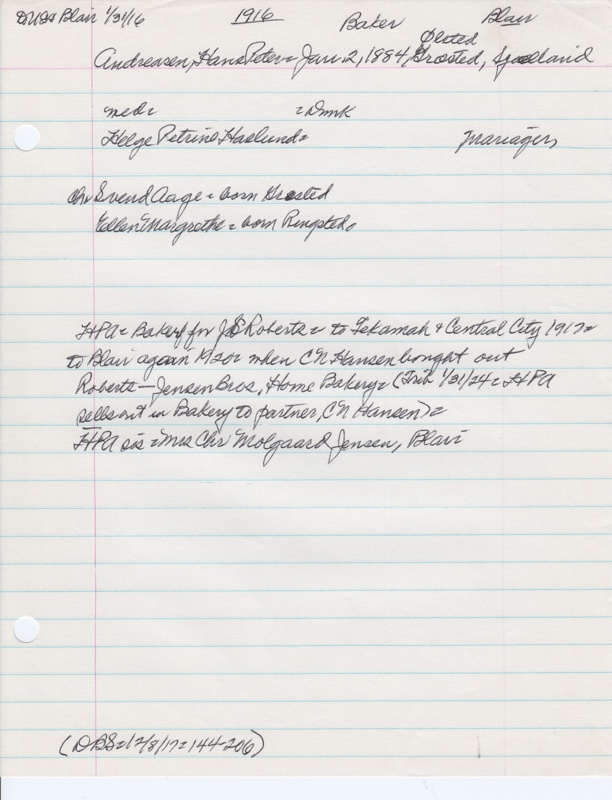 Blair 1/31/16 1916 Baker Blair
Ølsted
Andreasen, Hans Peter = Jan. 2, 1884, Grosted, Sjaelland
med = = Dmk
Helge Petrine Haslund = Mariager,
ch = Svend Aage = born Grosted
Ellen Margrethe = born Ringsted.
HPA = Baker for J S Roberts = to Tekamah & Central City 1917 =
to Blair again = when C N Hansen bought out
Roberts — Jensen Bros, Home Bakery = (Trib 1/31/24 = HPA
sells out in Bakery to partner, C N Hansen) =
HPA sis = Mrs Chr Molgaard Jensen, Blair
(DBS = 12/8/17 = 144-206)